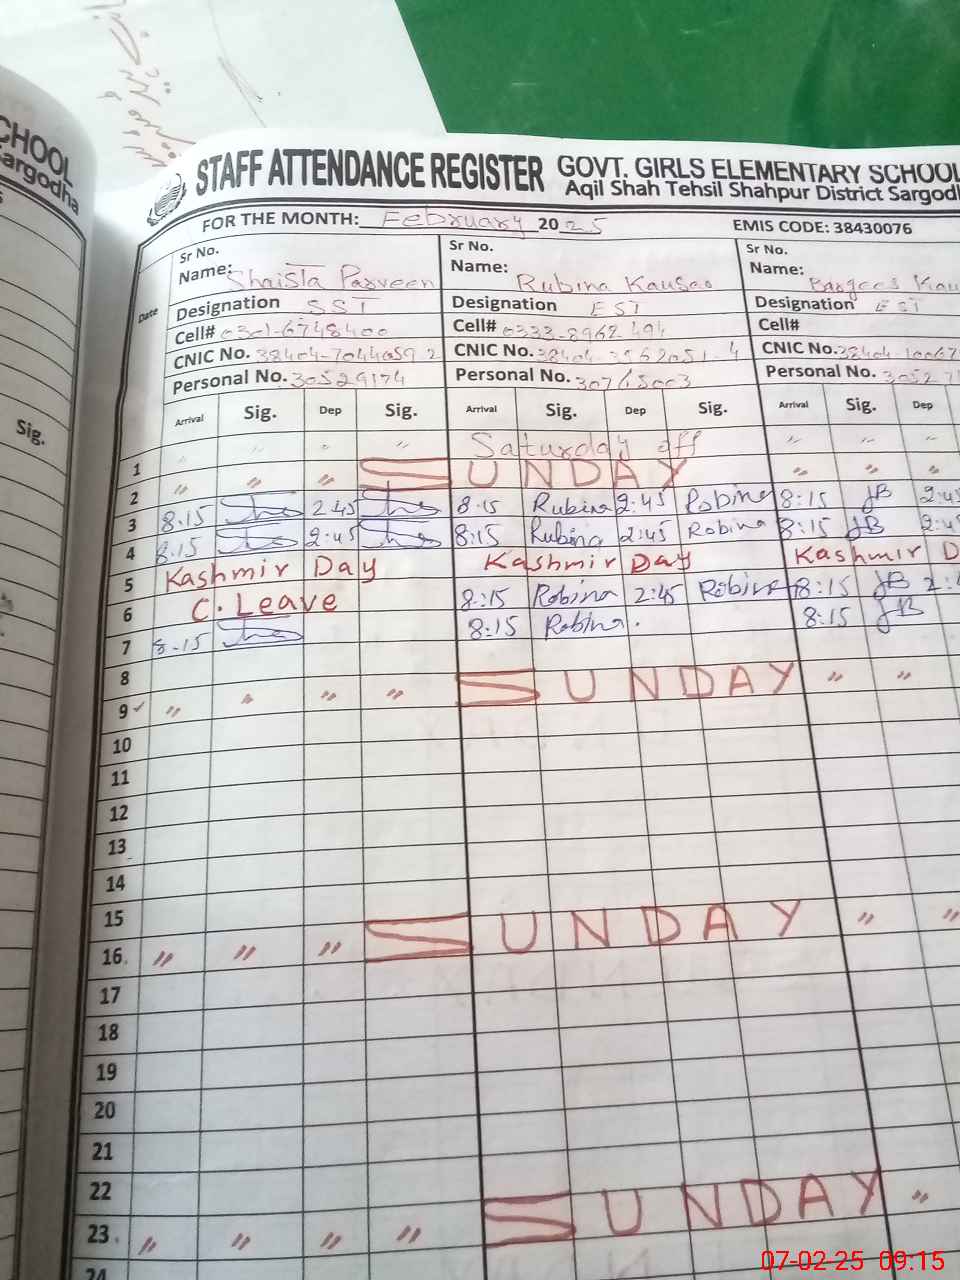 CHOOL
Sargodha
Sig.
STAFF ATTENDANCE REGISTER GOVT. GIRLS ELEMENTARY SCHOOL
Aqil Shah Tehsil Shahpur District Sargod
FOR THE MONTH: February 2025 EMIS CODE: 38430076
Date Sr No. Sr No. Sr No.
Name: Shaista Parveen Name: Rubina Kausar Name:
Designation SST Designation EST Designation EST
Cell# 0301-6748400 Cell# 0333-8962494 Cell#
CNIC No. CNIC No. CNIC No.
Personal No. 30529174 Personal No. Personal No.
Arrival Sig. Dep Sig. Arrival Sig. Dep Sig. Arrival Sig. Dep
1 " " " " Saturday off " " "
2 " " " SUNDAY " " "
3 8.15 2:45 8:15 Rubina 2:45 Robina 8:15 JB 2:4
4 8:15 2:45 8:15 Rubina 2:45 Robina 8:15 JB 2:4
5 Kashmir Day Kashmir Day Kashmir D
6 C. Leave 8:15 Robina 2:45 Robina 8:15 JB 2:
7 8.15 8:15 Robina. 8:15 JB
8
9 " " " " SUNDAY " "
10
11
12
13
14
15
16 " " " SUNDAY " "
17
18
19
20
21
22
23 " " " " SUNDAY "
24
07-02-25 09:15